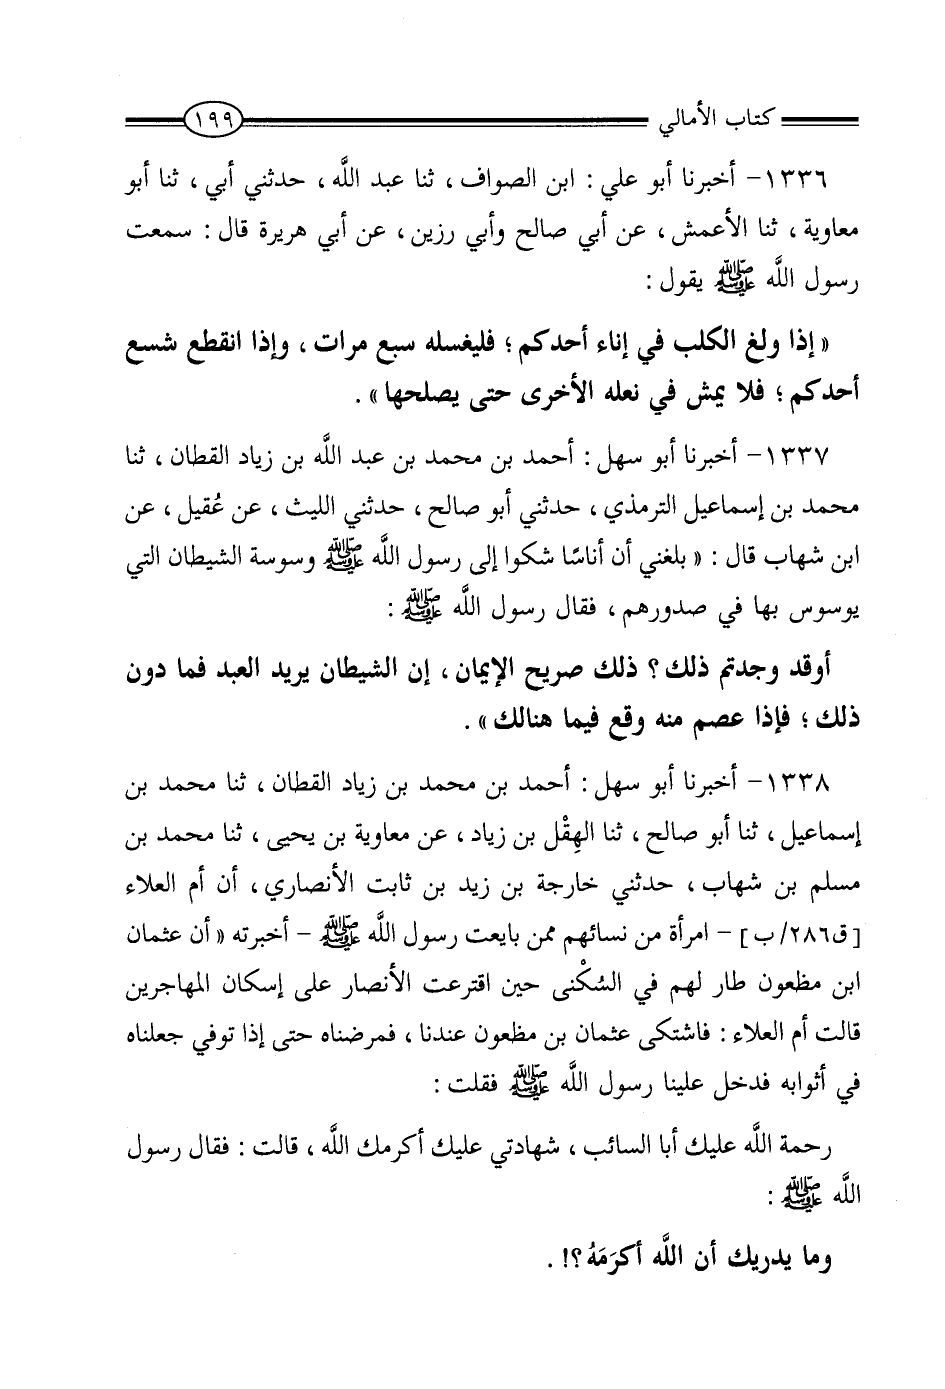 كتاب الأمالي ١٩٩
١٣٣٦- أخبرنا أبو علي : ابن الصواف ، ثنا عبد اللَّه ، حدثني أبي ، ثنا أبو
معاوية ، ثنا الأعمش ، عن أبي صالح وأبي رزين ، عن أبي هريرة قال : سمعت
رسول اللَّه ﷺ يقول :
« إذا ولغ الكلب في إناء أحدكم ؛ فليغسله سبع مرات ، وإذا انقطع شسع
أحدكم ؛ فلا يمش في نعله الأخرى حتى يصلحها » .
١٣٣٧- أخبرنا أبو سهل : أحمد بن محمد بن عبد اللَّه بن زياد القطان ، ثنا
محمد بن إسماعيل الترمذي ، حدثني أبو صالح ، حدثني الليث ، عن عُقيل ، عن
ابن شهاب قال : « بلغني أن أناسًا شكوا إلى رسول اللَّه ﷺ وسوسة الشيطان التي
يوسوس بها في صدورهم ، فقال رسول اللَّه ﷺ :
أوقد وجدتم ذلك ؟ ذلك صريح الإيمان ، إن الشيطان يريد العبد فما دون
ذلك ؛ فإذا عصم منه وقع فيما هنالك » .
١٣٣٨- أخبرنا أبو سهل : أحمد بن محمد بن زياد القطان ، ثنا محمد بن
إسماعيل ، ثنا أبو صالح ، ثنا الهِقْل بن زياد ، عن معاوية بن يحيى ، ثنا محمد بن
مسلم بن شهاب ، حدثني خارجة بن زيد بن ثابت الأنصاري ، أن أم العلاء
[ ق٢٨٦/ ب ] - امرأة من نسائهم ممن بايعت رسول اللَّه ﷺ - أخبرته « أن عثمان
ابن مظعون طار لهم في السُكْنى حين اقترعت الأنصار على إسكان المهاجرين
قالت أم العلاء : فاشتكى عثمان بن مظعون عندنا ، فمرضناه حتى إذا توفي جعلناه
في أثوابه فدخل علينا رسول اللَّه ﷺ فقلت :
رحمة اللَّه عليك أبا السائب ، شهادتي عليك أكرمك اللَّه ، قالت : فقال رسول
اللَّه ﷺ :
وما يدريك أن اللَّه أكرَمَهُ ؟! .